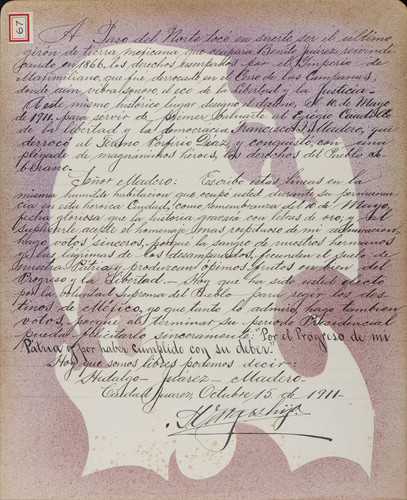 67
A Paso del Norte tocó en suerte ser el último
girón de tierra mejicana que ocupara Benito Juárez, reivindi-
cando en 1866, los derechos usurpados por el Imperio de
Maximiliano, que fué derrocado en el Cerro de las Campanas,
donde aún vibra sonoro el eco de la libertad y la Justicia.
A este mismo histórico lugar designó el destino, el 10 de Mayo
de 1911, para servir de primer baluarte al Egregio Caudillo
de la libertad y la democracia, Francisco I. Madero, que
derrocó al tirano Porfirio Díaz y conquistó con una
pléyade de magnánimos héroes, los derechos del Pueblo So-
berano.
Señor Madero: Escribo estas líneas en la
misma humilde habitación que ocupó usted durante su permanen-
cia en esta heroica Ciudad, como remembranza del 10 de Mayo,
fecha gloriosa que la historia gravará con letras de oro; y al
suplicarle acepte el homenaje mas respetuoso de mi admiración
hago votos sinceros, porque la sangre de nuestros hermanos
y las lágrimas de los desamparados, fecunden el suelo de
nuestra Patria y produzcan ópimos frutos en bien del
Progreso y la Libertad.— Hoy que ha sido usted electo
por la voluntad Suprema del Pueblo para regir los des-
tinos de México, yo que tanto lo admiro, hago también
votos, porque al terminar su período Presidencial
pueda felicitarlo sinceramente: "Por el Progreso de mi
Patria y por haber cumplido con su deber."
Hoy que somos libres podemos decir:
Hidalgo— Juárez— Madero.
Ciudad Juárez, Octubre 15 de 1911.